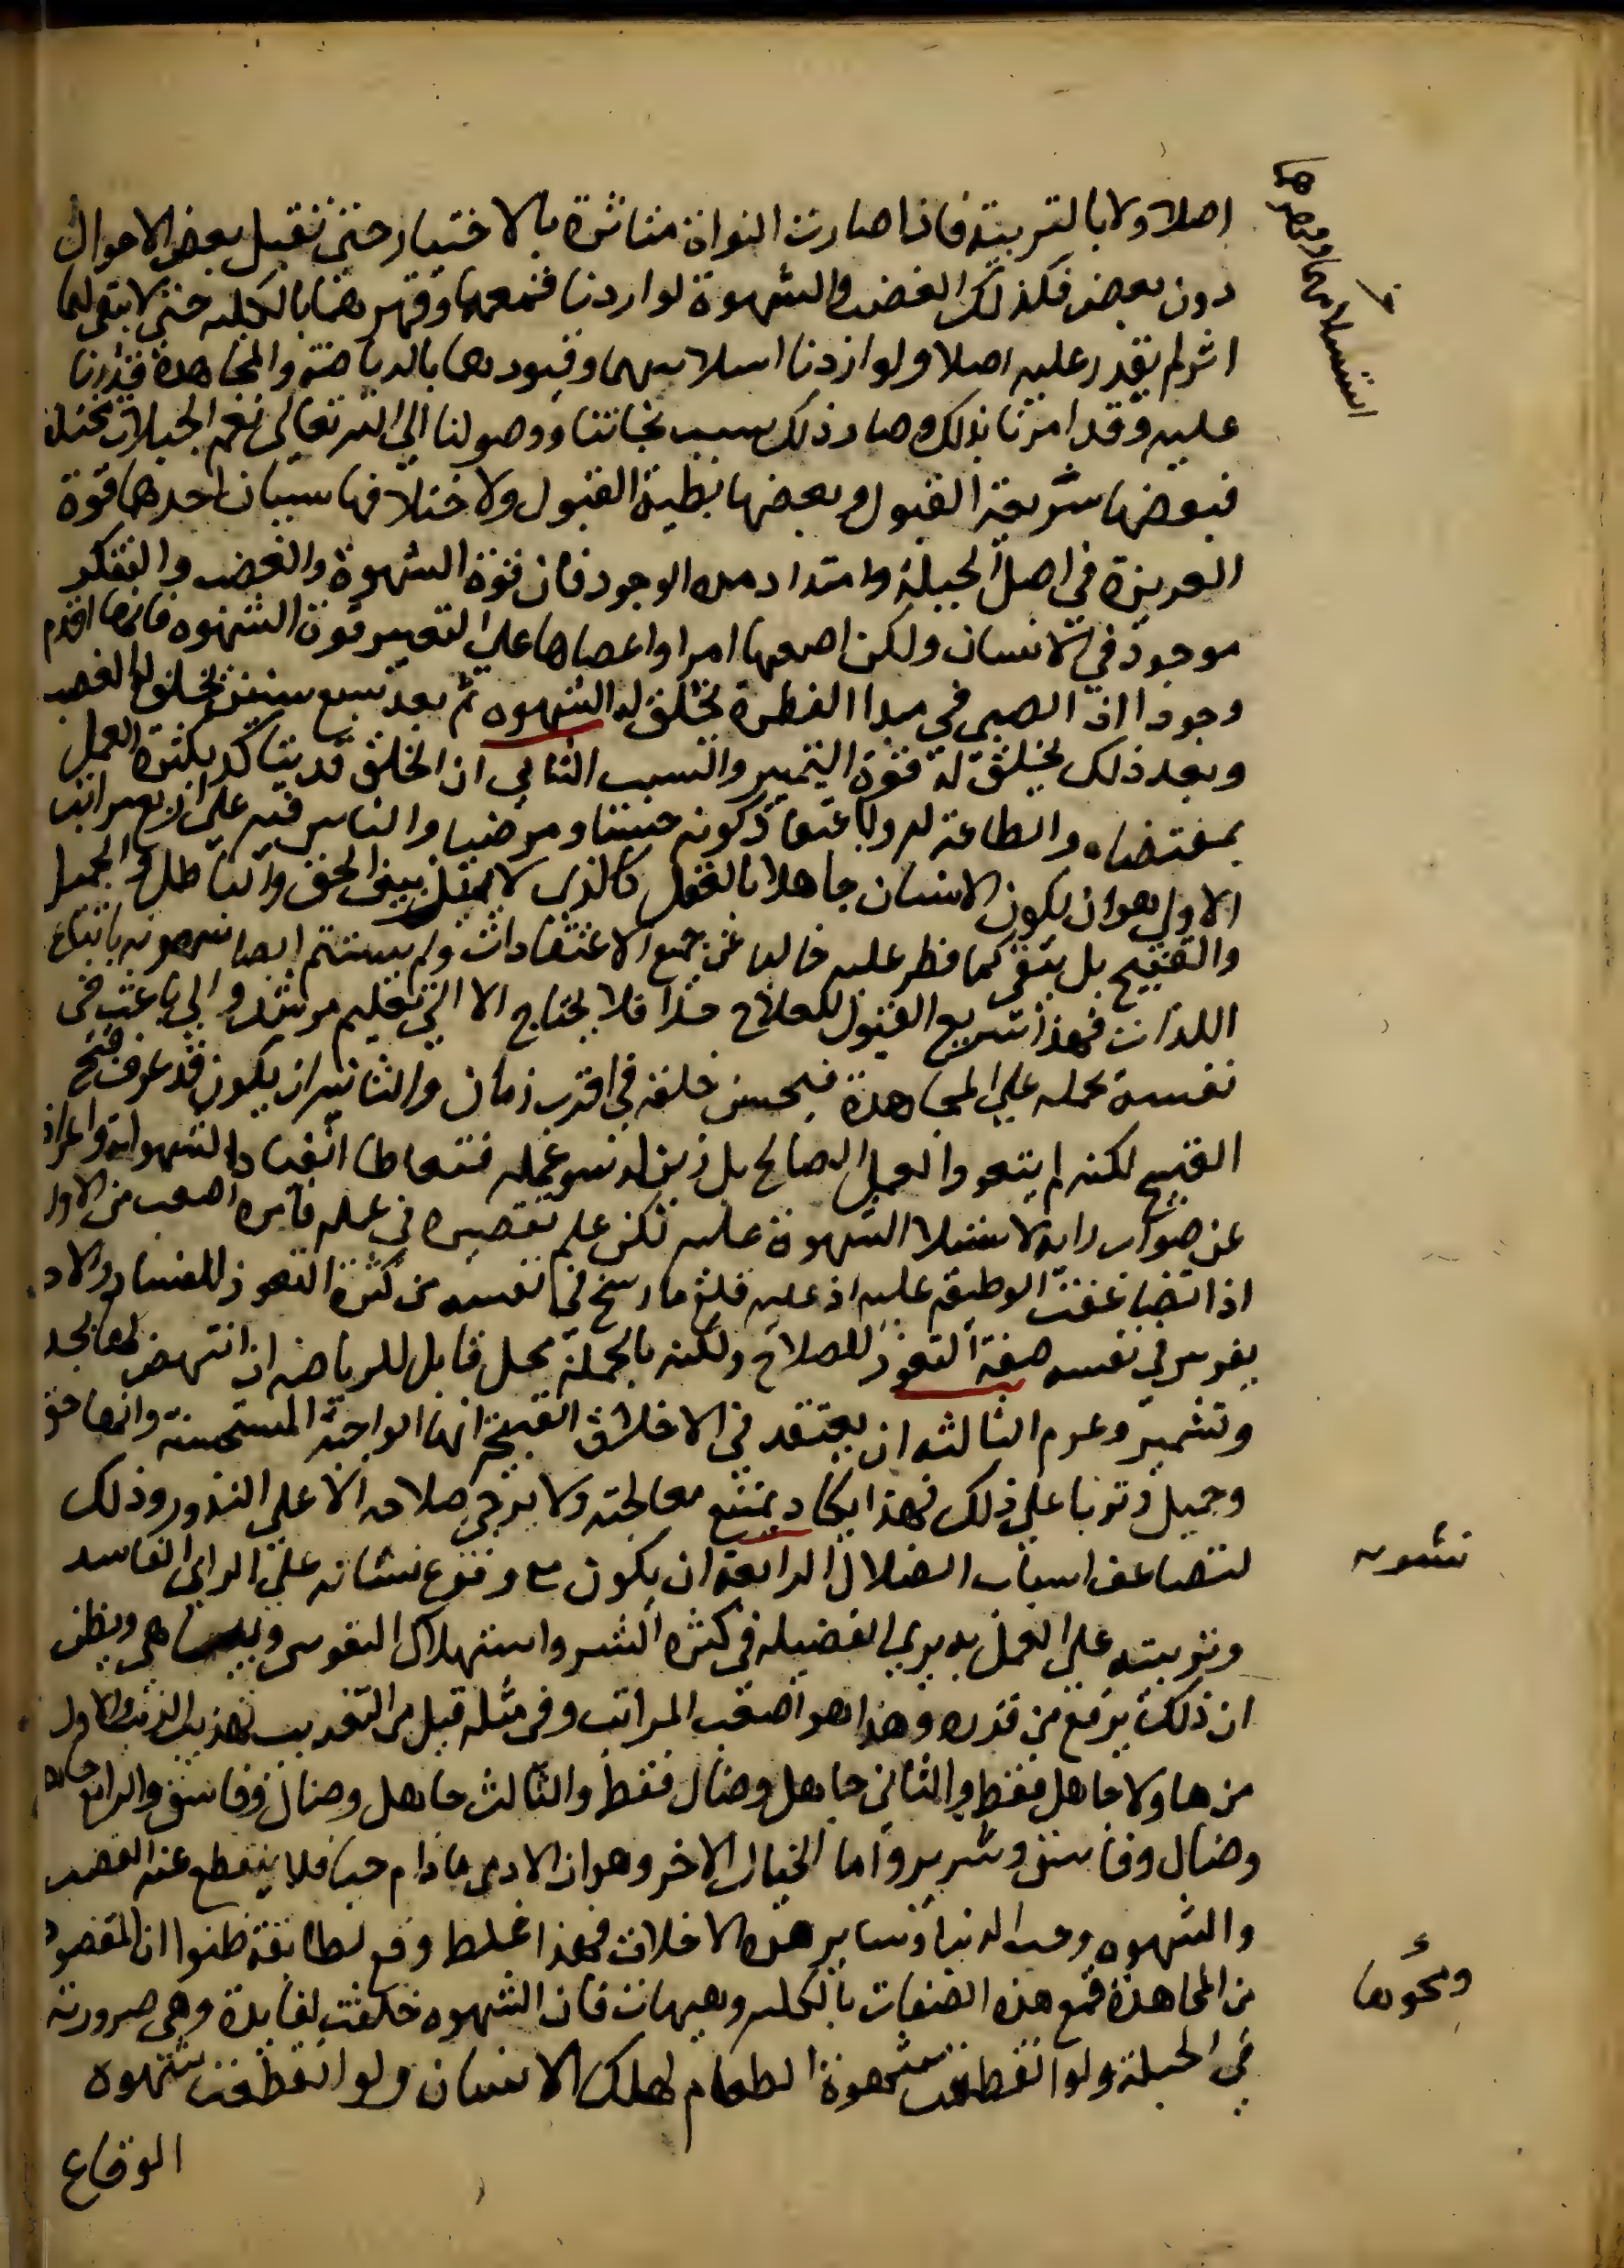 اصلا ولا بالتربية فاذا صارت النواة متاثرة بالاختيار حتى تقبل بعض الاحوال
دون بعض فكذلك الغضب والشهوة لو اردنا قمعهما وقهرهما بالكلية حتى لا يبقى لهما
اثر لم نقدر عليه اصلا ولو اردنا اسلاسهما وقيودهما بالرياضة والمجاهدة قدرنا
عليه وقد امرنا بذلك وصار ذلك سبب نجاتنا ووصولنا الى الله تعالى نعم الجبلات مختلفة
فبعضها سريعة القبول وبعضها بطية القبول ولاختلافها سببان احدهما قوة
الغريزة في اصل الجبلة وامتداد مدة الوجود فان قوة الشهوة والغضب والتفكر
موجود في الانسان ولكن اصعبها امرا واعصاها على التغيير قوة الشهوه فانها اقدم
وجودا اذ الصبي في مبدا الفطرة تخلق له الشهوه ثم بعد سبع سنين يخلق له الغضب
وبعد ذلك يخلق له قوة التمييز والسبب الثاني ان الخلق قد يتاكد بكثرة العمل
بمقتضاه والطاعة له وباعتقاد كونه حسنا ومرضيا والناس فيه على اربع مراتب
الاولى هو ان يكون الانسان جاهلا بالعقل كالذى لا يميز بين الحق والباطل والجميل
والقبيح بل بقى كما فطر عليه خاليا عن جميع الاعتقادات ولم يستتم ايضا شهوته باتباع
اللذات فهذا سريع القبول للعلاج جدا فلا يحتاج الا الى تعليم مرشد والى باعث في
نفسه يحمله على المجاهدة فيحسن خلقه في اقرب زمان والثانيه ان يكون قد عرف قبح
القبيح لكنه لم يتعود العمل الصالح بل زين له سو عمله فتعاطاه انقيادا لشهواته واعراضا
عن صواب رايه لاستيلا الشهوة عليه لكن علم تقصيره في عمله فامره اصعب من الاول
اذا تضاعفت الوظيفة عليه اذ عليه قلع ما رسخ في نفسه من كثرة التعود للفساد والاخر ان
يغرس في نفسه صفة التعود للصلاح ولكنه بالجملة محل قابل للرياضه ان انتهض لها بجد
وتشمير وعزم الثالثه ان يعتقد في الاخلاق القبيحة انها الواجبة المستحسنة وانها حق
وجميل وتربا على ذلك فهذا يكاد يمتنع معالجته ولا يرجى صلاحه الا على الندور وذلك
لتضاعف اسباب الضلال الرابعة ان يكون مع وقوع نشانه على الراي الفاسد
وتربيته على العمل به يرى الفضيله في كثره الشر واستهلاك النفوس ويباهي ويظن
ان ذلك يرفع من قدره وهذا هو اصعب المراتب وفي مثله قيل من التعذيب تهذيب الذيب والاول
من هاولا جاهل فقط والثاني جاهل وضال فقط والثالث جاهل وضال وفاسق والرابع جاهل
وضال وفاسق وشرير واما الخيال الاخر وهو ان الادمى ما دام حيا فلا ينقطع عنه الغضب
والشهوه وحب الدنيا وساير هذه الاخلاق فهذا غلط وقع لطائفة ظنوا ان المقصود
من المجاهدة قمع هذه الصفات بالكليه وهيهات فان الشهوه خلقت لفايدة وهي ضرورية
في الجبلة ولو انقطعت شهوة الطعام لهلك الانسان ولو انقطعت شهوه
الوقاع
نشوه
ومحوها